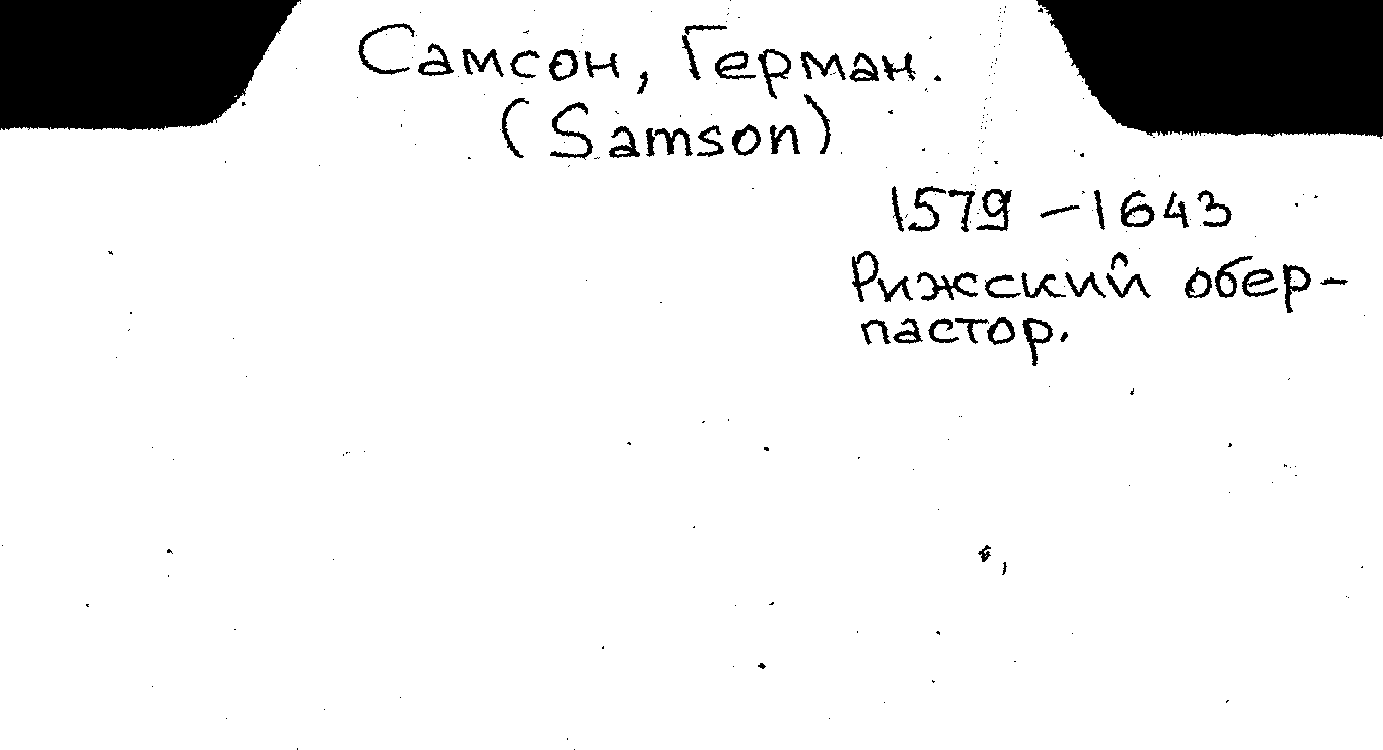 Самсон, Герман.
(Samson)
1579 – 1643
Рижский обер-
пастор.